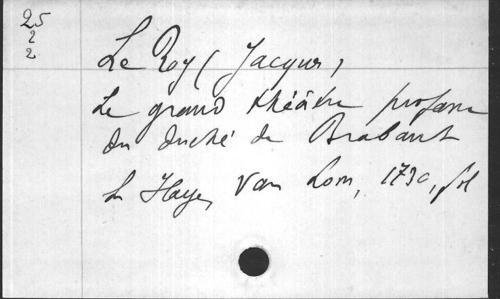 25
2
2
Le Roy (Jacques)
Le grand théâtre profane
du duché de Brabant
La Haye, Van Lom, 1730, fol